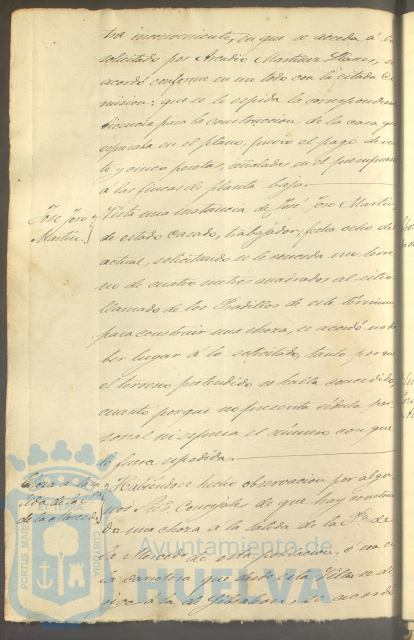 tra inconveniente, en que se acceda á lo
solicitado por Arcadio Martinez Llanes, se
acordó conforme en un todo con la citada Co
mision; que se le expida la correspondiente
licencia para la construccion de la casa que
espresaba en el plano, previo el pago de vein
te y cinco pesetas, señaladas en el presupuesto
á las fincas de planta baja.
José Toro y
Martin.
Vista una instancia de José Toro Martin
de estado casado, trabajador, fecha ocho del
actual, solicitando se le conceda un terre
no de cuatro metros cuadrados al sitio
llamado de los Pradillos de este término
para construir una choza, se acordó no ha
ber lugar á lo solicitado, tanto porque
el terreno pretendido se halla concedido,
cuanto porque no presenta cédula per
sonal ni espresa el número con que
le fuera espedida.
Choza á la sa
lida de la Pta.
de la Merced
Habiéndose hecho observacion por algu
nos Sres. Concejales de que hay construi
da una choza á la salida de la Pta. de
la Merced de esta poblacion, ó sea en
la carretera que desde esta Villa se di
rige á la de Gibraleon, se acordó
PORTUS MARIS
ET TERRAE
CUSTODIA
Ayuntamiento de
HUELVA